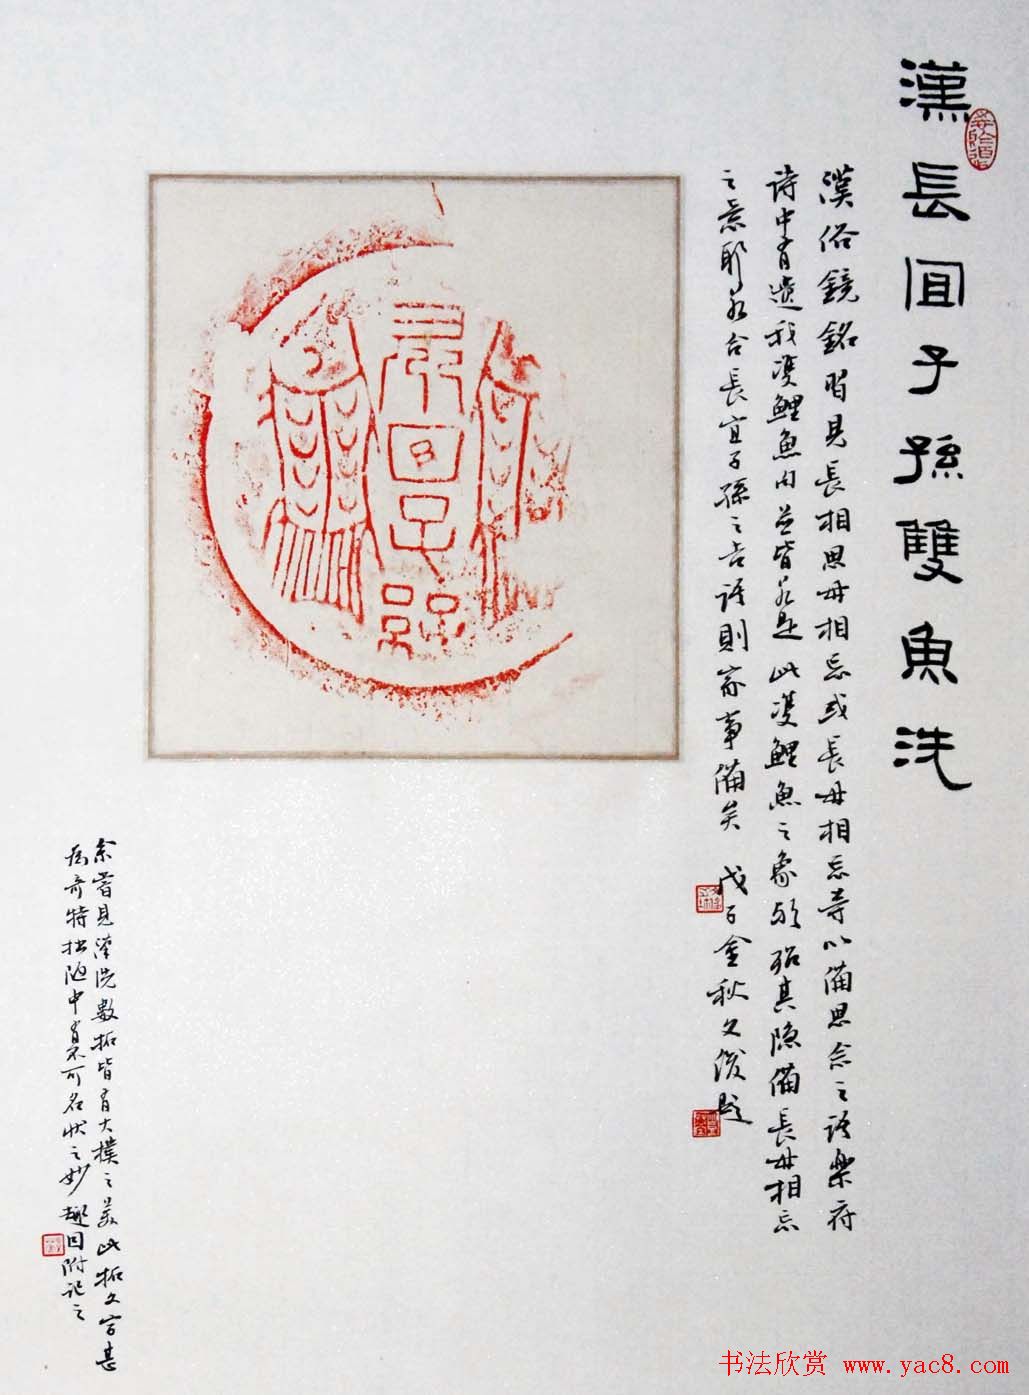 漢長宜子孫雙魚洗
漢俗鏡銘習見長相思毋相忘或長毋相忘等以備思念之語樂府
詩中有遺我雙鯉魚 此雙鯉魚之象 其隱備長毋相忘
之意耶 合長宜子孫之吉語則家事備矣 戊子金秋文俊題
長宜子孫
余嘗見漢洗數拓皆有大樸之美此拓文字甚
為奇特拙陋中有不可名狀之妙趣因附記之
书法欣赏 www.yac8.com